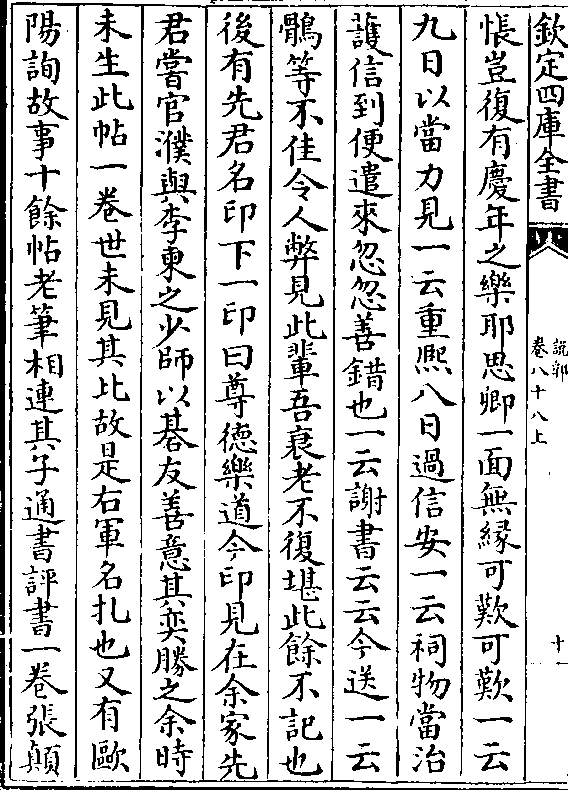 欽定四庫全書
説郛
卷八十八上
十一
悵豈復有慶年之樂耶思卿一面無緣可歎可歎一云
九日以當力見一云重熙八日過信安一云祠物當治
䕶信到便遣來忽忽善錯也一云謝書云云今送一云
鶻等不佳令人弊見此輩吾衰老不復堪此餘不記也
後有先君名印下一印曰尊德樂道今印見在余家先
君嘗官濮與李東之少師以碁友善意其奕勝之余時
未生此帖一卷世未見其比故是右軍名扎也又有歐
陽詢故事十餘帖老筆相連其子通書評書一卷張顛